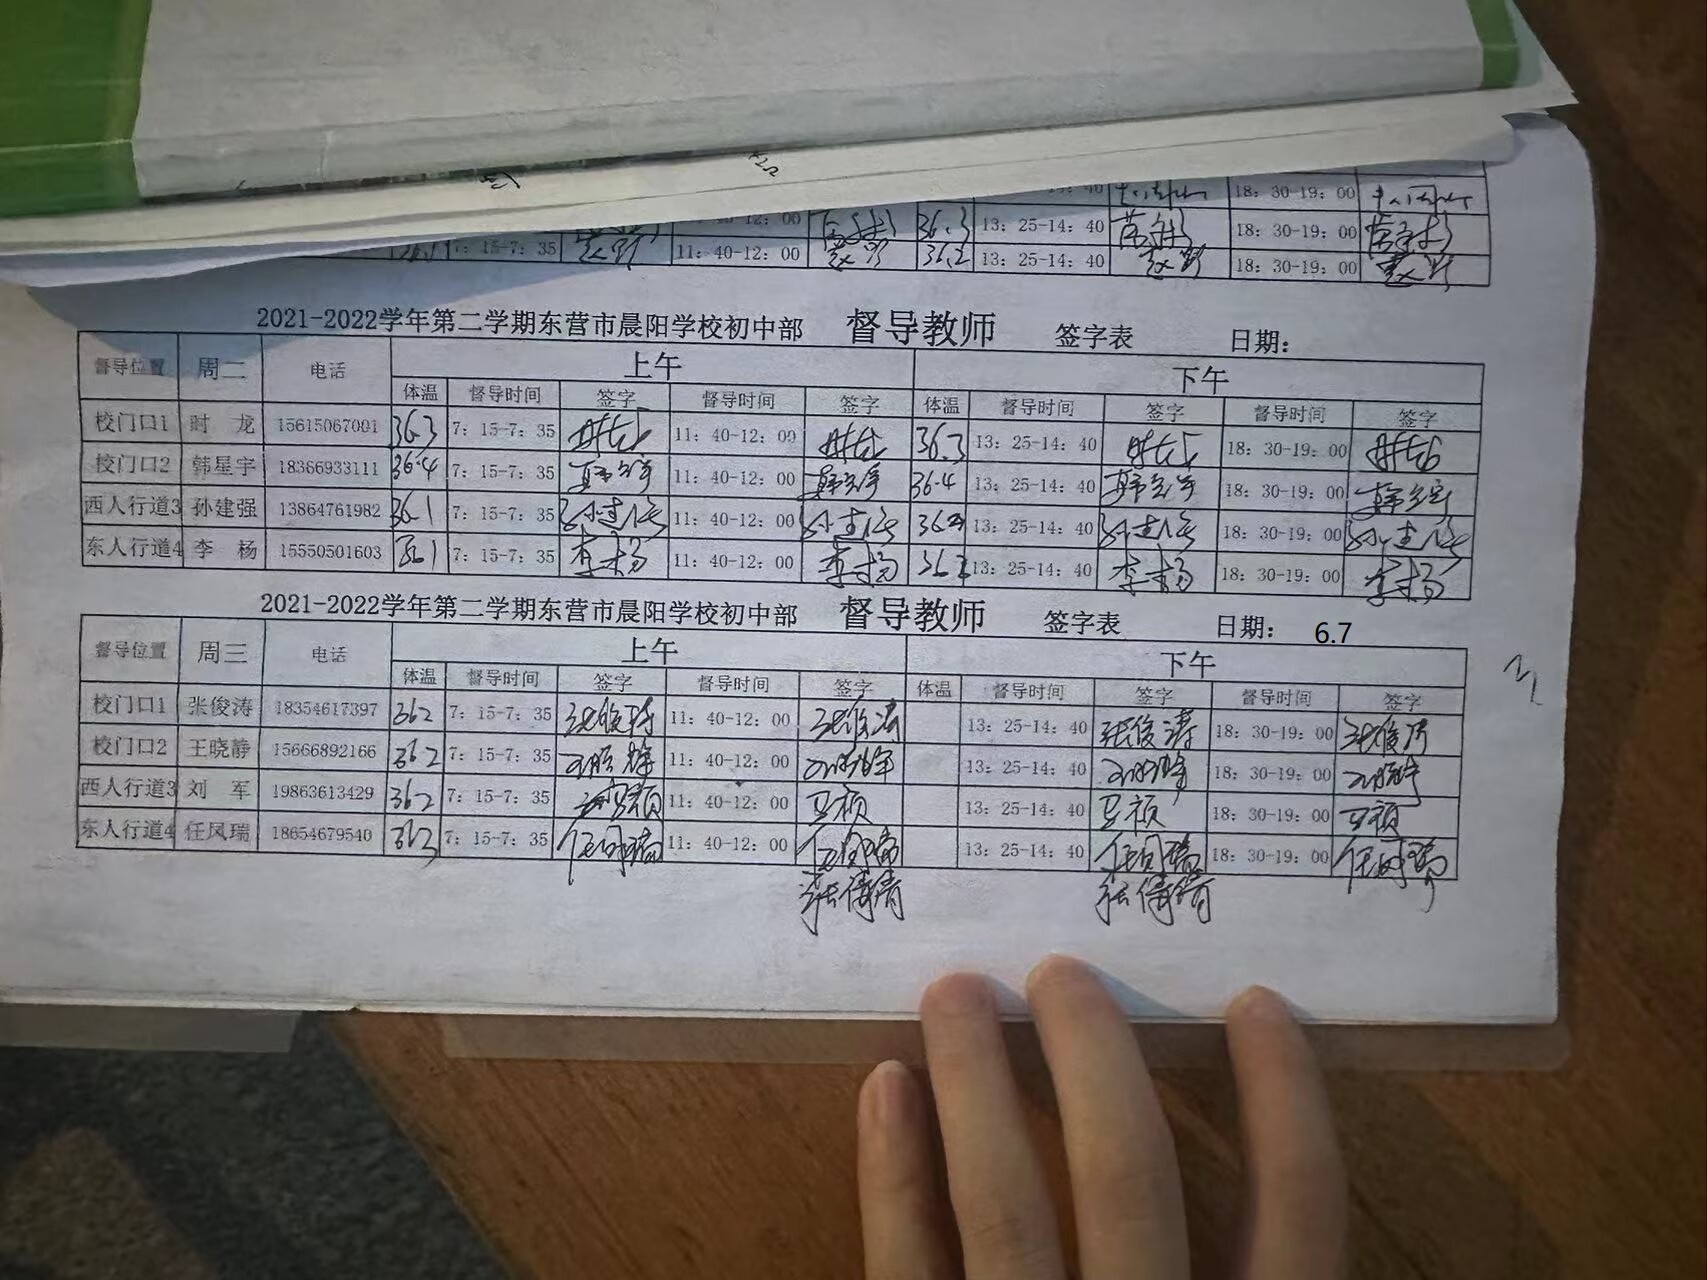 18：30-19：00
36.3 13：25-14：40 18：30-19：00
7：15-7：35 11：40-12：00 36.2 13：25-14：40 18：30-19：00
2021-2022学年第二学期东营市晨阳学校初中部 督导教师 签字表 日期：
督导位置 周二 电话 上午 下午
体温 督导时间 签字 督导时间 签字 体温 督导时间 签字 督导时间 签字
校门口1 时 龙 15615067001 36.3 7：15-7：35 时龙 11：40-12：00 时龙 36.3 13：25-14：40 时龙 18：30-19：00 时龙
校门口2 韩星宇 18366933111 36.4 7：15-7：35 韩星宇 11：40-12：00 韩星宇 36.4 13：25-14：40 韩星宇 18：30-19：00 韩星宇
西人行道3 孙建强 13864761982 36.1 7：15-7：35 孙建强 11：40-12：00 孙建强 13：25-14：40 孙建强 18：30-19：00 孙建强
东人行道4 李 杨 15550501603 36.1 7：15-7：35 李杨 11：40-12：00 李杨 13：25-14：40 李杨 18：30-19：00 李杨
2021-2022学年第二学期东营市晨阳学校初中部 督导教师 签字表 日期： 6.7
督导位置 周三 电话 上午 下午
体温 督导时间 签字 督导时间 签字 体温 督导时间 签字 督导时间 签字
校门口1 张俊涛 18354617397 362 7：15-7：35 张俊涛 11：40-12：00 张俊涛 13：25-14：40 张俊涛 18：30-19：00 张俊涛
校门口2 王晓静 15666892166 362 7：15-7：35 王晓静 11：40-12：00 王晓静 13：25-14：40 王晓静 18：30-19：00 王晓静
西人行道3 刘 军 19863613429 362 7：15-7：35 11：40-12：00 13：25-14：40 18：30-19：00
东人行道4 任凤瑞 18654679540 363 7：15-7：35 任凤瑞 11：40-12：00 任凤瑞 13：25-14：40 任凤瑞 18：30-19：00 任凤瑞